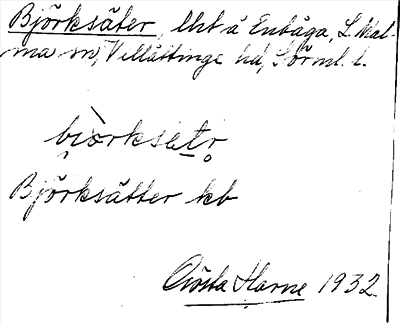 Björksäter, lht å Enbåga, L. Mal-
ma sn, Villåttinge hd, Sörml. l.
bìorksætr
Björksätter kb
Gösta Harne 1932